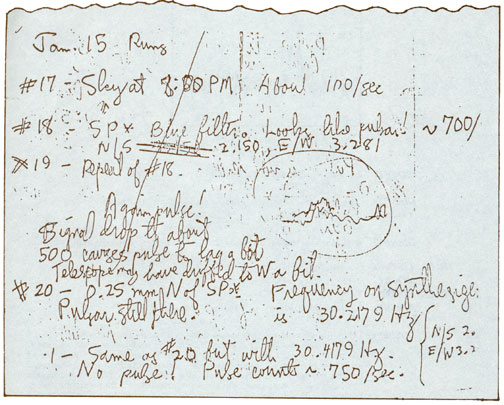 Jan. 15 Runs
#17 - Sky at 8:00 PM: About 100/sec
#18 - SP* Blue filter. Looks like pulsar! ~ 700/
N/S 2.150, E/W 3.281
#19 - Repeal of #18.
Again pulse!
Signal drop to about
500 causes pulse to lag a bit
Telescope may have drifted to W a bit.
#20 - 0.25 mm N of SP* Frequency on synthesize:
Pulsar still there! is 30.2179 Hz
N/S 2.
E/W 3.2
1 - Same as #20 but with 30.4179 Hz.
No pulse! Pulse counts ~ 750/sec.